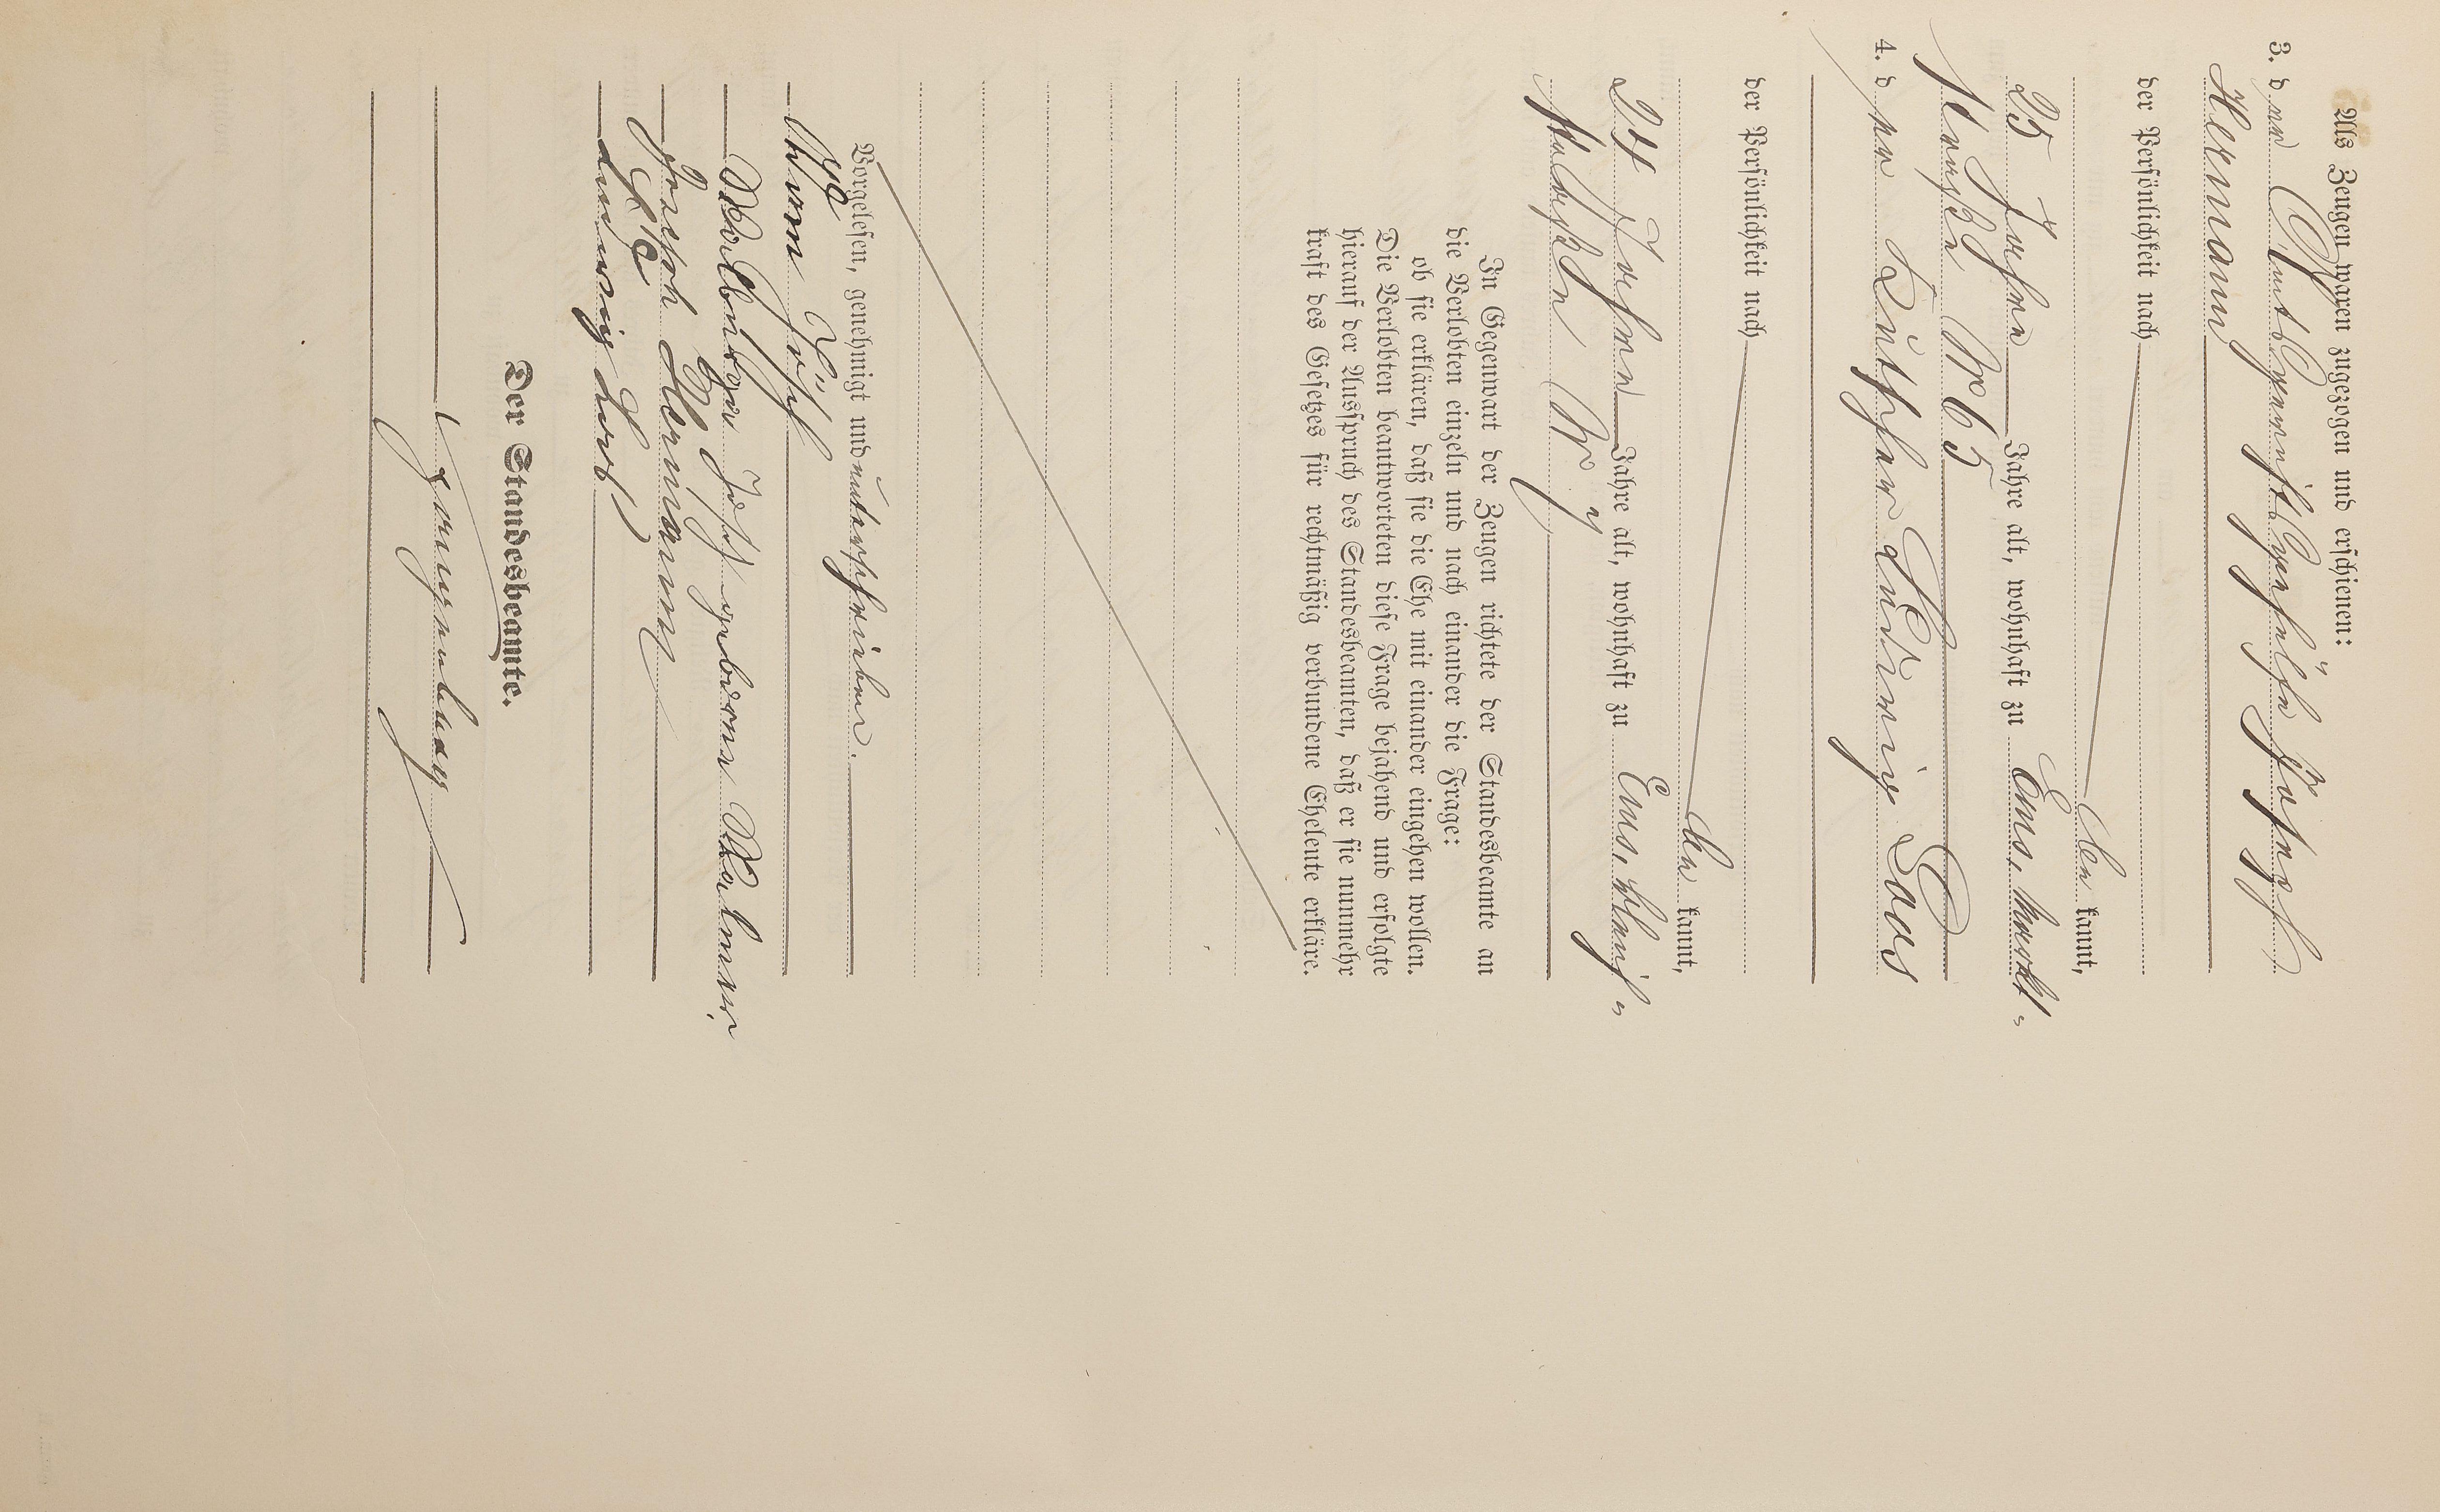 Als Zeugen waren zugezogen und erschienen:
3. der Amtsgerichtsgehülfe Joseph
Hermann
der Persönlichkeit nach
be kannt,
25 Jahre Jahre alt, wohnhaft zu Ems, Markt-
straße № 65
4. der Küfer Ludwig Loos
der Persönlichkeit nach
be kannt,
24 Jahre Jahre alt, wohnhaft zu Ems,
straße №
In Gegenwart der Zeugen richtete der Standesbeamte an
die Verlobten einzeln und nach einander die Frage:
ob sie erklären, daß sie die Ehe mit einander eingehen wollen.
Die Verlobten beantworteten diese Frage bejahend und erfolgte
hierauf der Ausspruch des Standesbeamten, daß er sie nunmehr
kraft des Gesetzes für rechtmäßig verbundene Eheleute erkläre.
Vorgelesen, genehmigt und unterschrieben.
geborene
Joseph Hermann
Ludwig Loos
Der Standesbeamte.